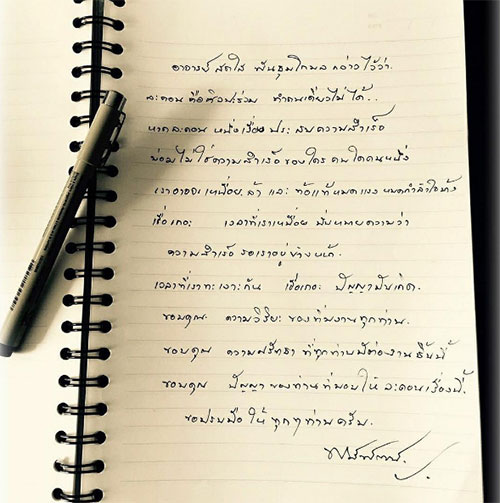 อาจารย์ สดใส พันธุมโกมล กล่าวไว้ว่า.
ละคอน คือศิลปะร่วม ทำคนเดียวไม่ได้..
หากละคอน หนึ่งเรื่อง ประสบความสำเร็จ
ย่อมไม่ใช่ความสำเร็จ ของใคร คนใดคนหนึ่ง
เราอาจจะเหนื่อย ล้า และ ท้อแท้หมดแรง หมดกำลังใจบ้าง
เชื่อเถอะ เวลาที่เราเหนื่อย นั่นหมายความว่า
ความสำเร็จ รอเราอยู่ข้างหน้า.
เวลาที่เราทะเลาะกัน เชื่อเถอะ ปัญญามันเกิด.
ขอบคุณ ความวิริยะ ของทีมงานทุกท่าน.
ขอบคุณ ความศรัทธา ที่ทุกท่านมีต่องานชิ้นนี้
ขอบคุณ ปัญญาของท่านที่มอบให้ ละคอนเรื่องนี้.
ขอปรบมือ ให้ ทุกๆท่านครับ.